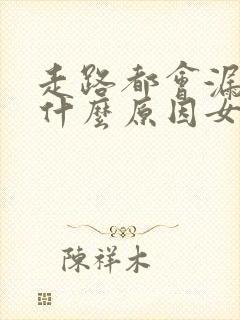 走路都會漏
什麼原因女
陳祥木